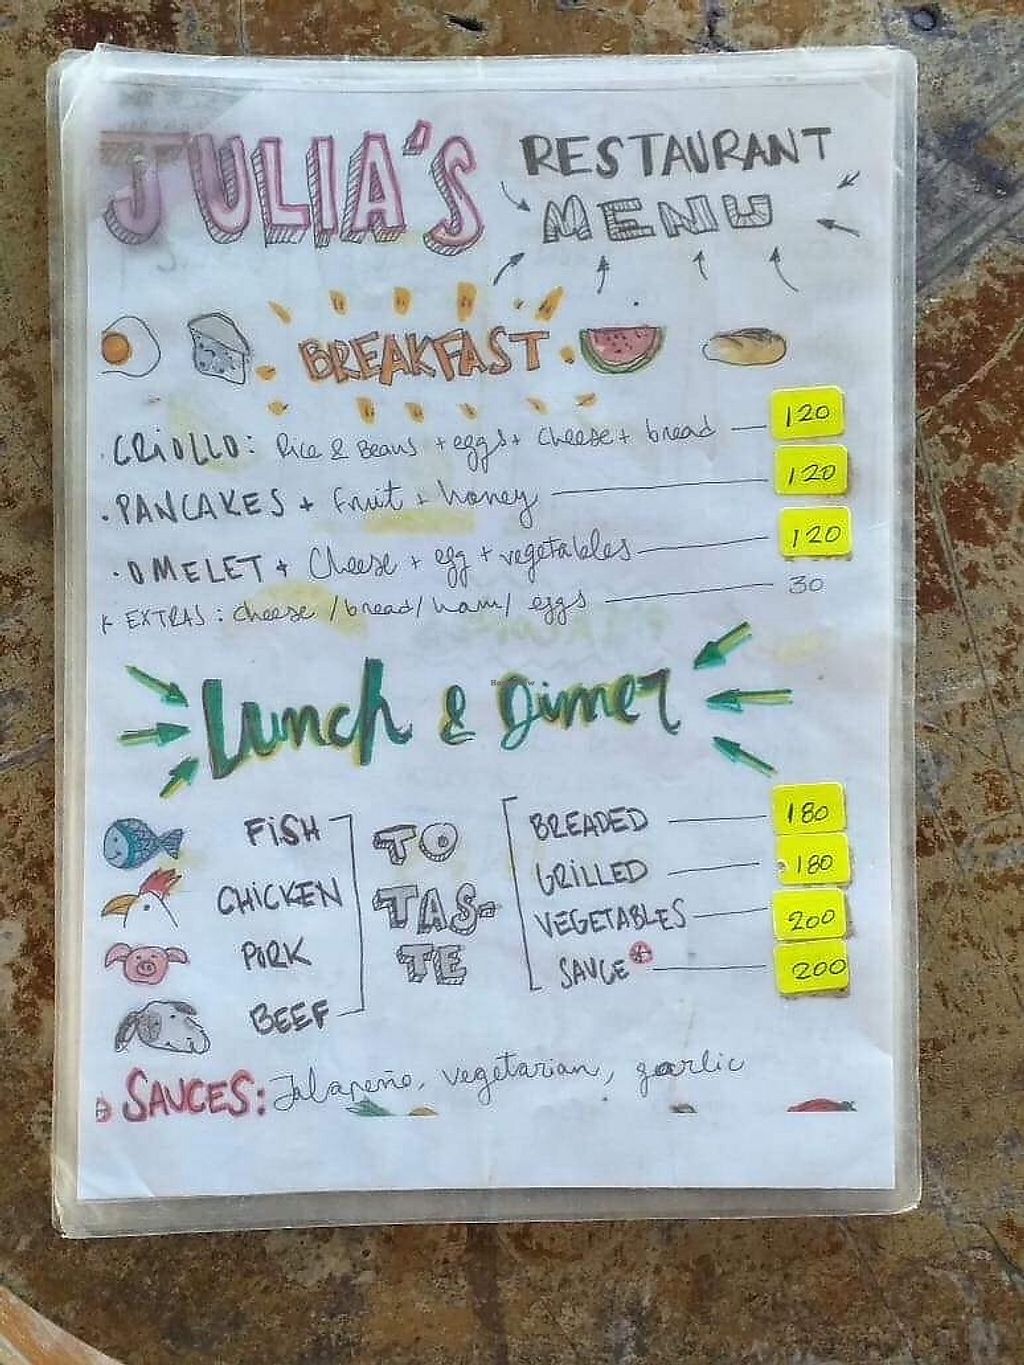 JULIA'S RESTAURANT
MENU
BREAKFAST
· CRIOLLO: Rice & Beans + eggs + cheese + bread — 120
· PANCAKES + fruit + honey — 120
· OMELET + Cheese + egg + vegetables — 120
* EXTRAS: cheese / bread / ham / eggs — 30
Lunch & Dinner
FISH
CHICKEN
PORK
BEEF
TO
TAS-
TE
BREADED — 180
GRILLED — 180
VEGETABLES — 200
SAUCE — 200
SAUCES: Jalapeño, vegetarian, garlic